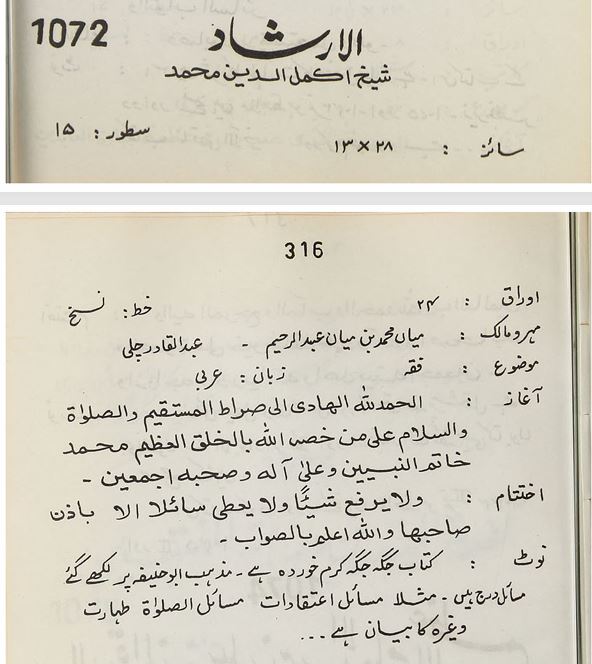 1072
الارشاد
شیخ اکمل الدین محمد
سائز : ۲۸ × ۱۳ سطور : ۱۵
316
اوراق : ۲۴ خط : نسخ
مہر و مالک : میاں محمد بن میاں عبدالرحیم - عبدالقادر چلی
موضوع : فقہ زبان : عربی
آغاز : الحمدللہ الھادی الی صراط المستقیم والصلوٰۃ
والسلام علی من خص اللہ بالخلق العظیم محمد
خاتم النبیین وعلیٰ آلہ وصحبہ اجمعین -
اختتام : ولا یرفع شیئًا ولا یعطی سائلا الا باذن
صاحبہا واللہ اعلم بالصواب -
نوٹ : کتاب جگہ جگہ کرم خوردہ ہے - مذہب ابوحنیفہ پر لکھے گئے
مسائل درج ہیں - مثلا مسائل اعتقادات مسائل الصلوٰۃ طہارت
وغیرہ کا بیان ہے ...